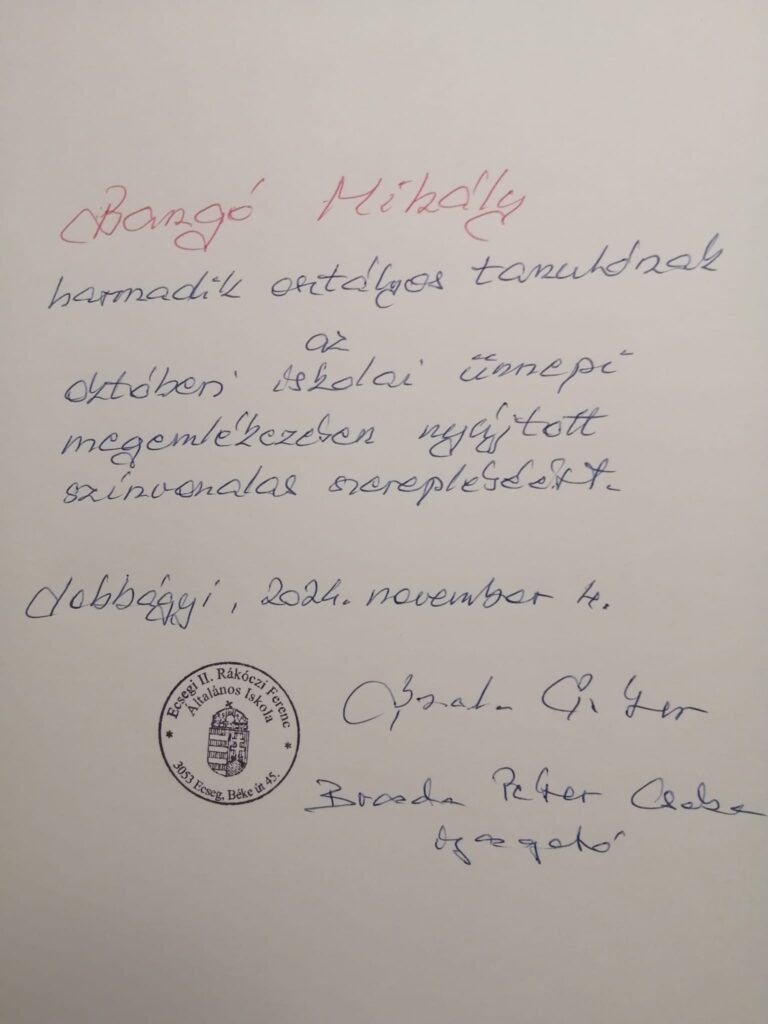 Bangó Mihály
harmadik osztályos tanulónak
az
októberi iskolai ünnepi
megemlékezésen nyújtott
színvonalas szerepléséért.
Jobbágyi, 2024. november 4.
Ecsegi II. Rákóczi Ferenc
Általános Iskola
3053 Ecseg, Béke út 45.
Péter Csaba
igazgató